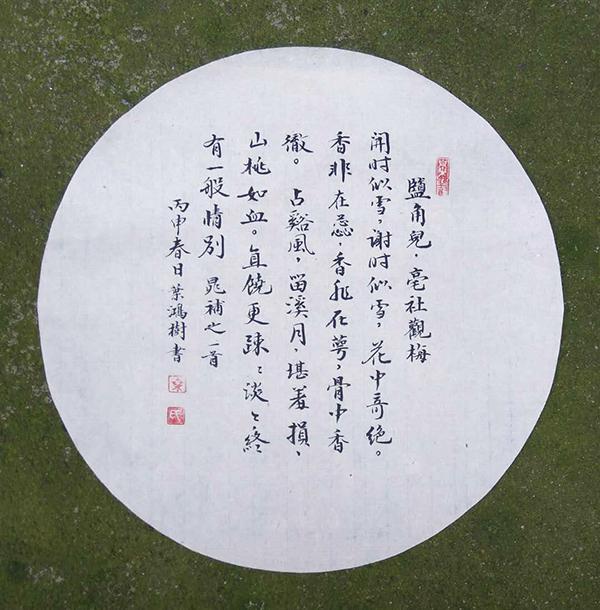 鹽角兒,亳社觀梅
開时似雪,谢时似雪,花中奇绝。
香非在蕊,香非在萼,骨中香
徹。占谿風,留溪月,堪羞損、
山桃如血。直饶更疎〻淡〻終
有一般情别 晁補之一首
丙申春日葉鴻樹書